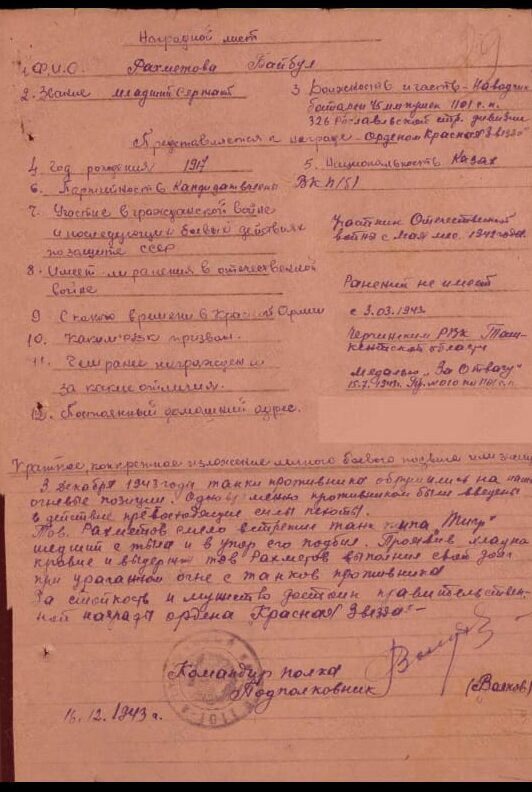 Наградной лист
1. Ф.И.О. Рахметова Байбул
2. Звание младший Сержант
3 Должность и часть - Наводчик
батареи 45 м/м пушек 1101 с.п.
326 Рославльской стр. дивизии
Представляется к награде - Орденом Красная Звезда
4. Год рождения 1917
5. Национальность Казах
6. Партийность Кандидат члены ВКП(б)
7. Участие в гражданской войне
и последующих боевых действиях
по защите СССР
Участник Отечественной
войны с мая мес. 1942 года
8. Имеет ли ранения в отечественной
войне
Ранений не имеет
9 С какого времени в Красной Армии
с 3.03.1942
10. Каким РВК призван.
РВК Таш-
кентской области
11. Чем ранее награжден и
за какие отличия.
медалью "За Отвагу"
12. Постоянный домашний адрес.
Краткое, конкретное изложение личного боевого подвига или
3 декабря 1943 года танки противника обрушились на
огневые позиции. Одновременно противником были введены
в действие превосходящие силы пехоты.
Тов. Рахметов смело встретил танк типа "Тигр"
шедший с тыла и в упор его подбил. Проявив хладно
кровие и выдержку тов Рахметов выполнил свой долг
при ураганном огне с танков противника
За стойкость и мужество достоин правительствен-
ной награды ордена "Красная Звезда" -
Командир полка
Подполковник
(Волков)
16.12.1943 г.